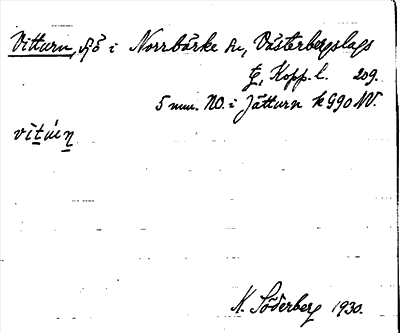 Vitturn, sjö i Norrbärke sn, Västerbergslags
tg, Kopp. l. 209.
5 mm. NO. i Jätturn k 990 NV.
N. Söderberg 1930.